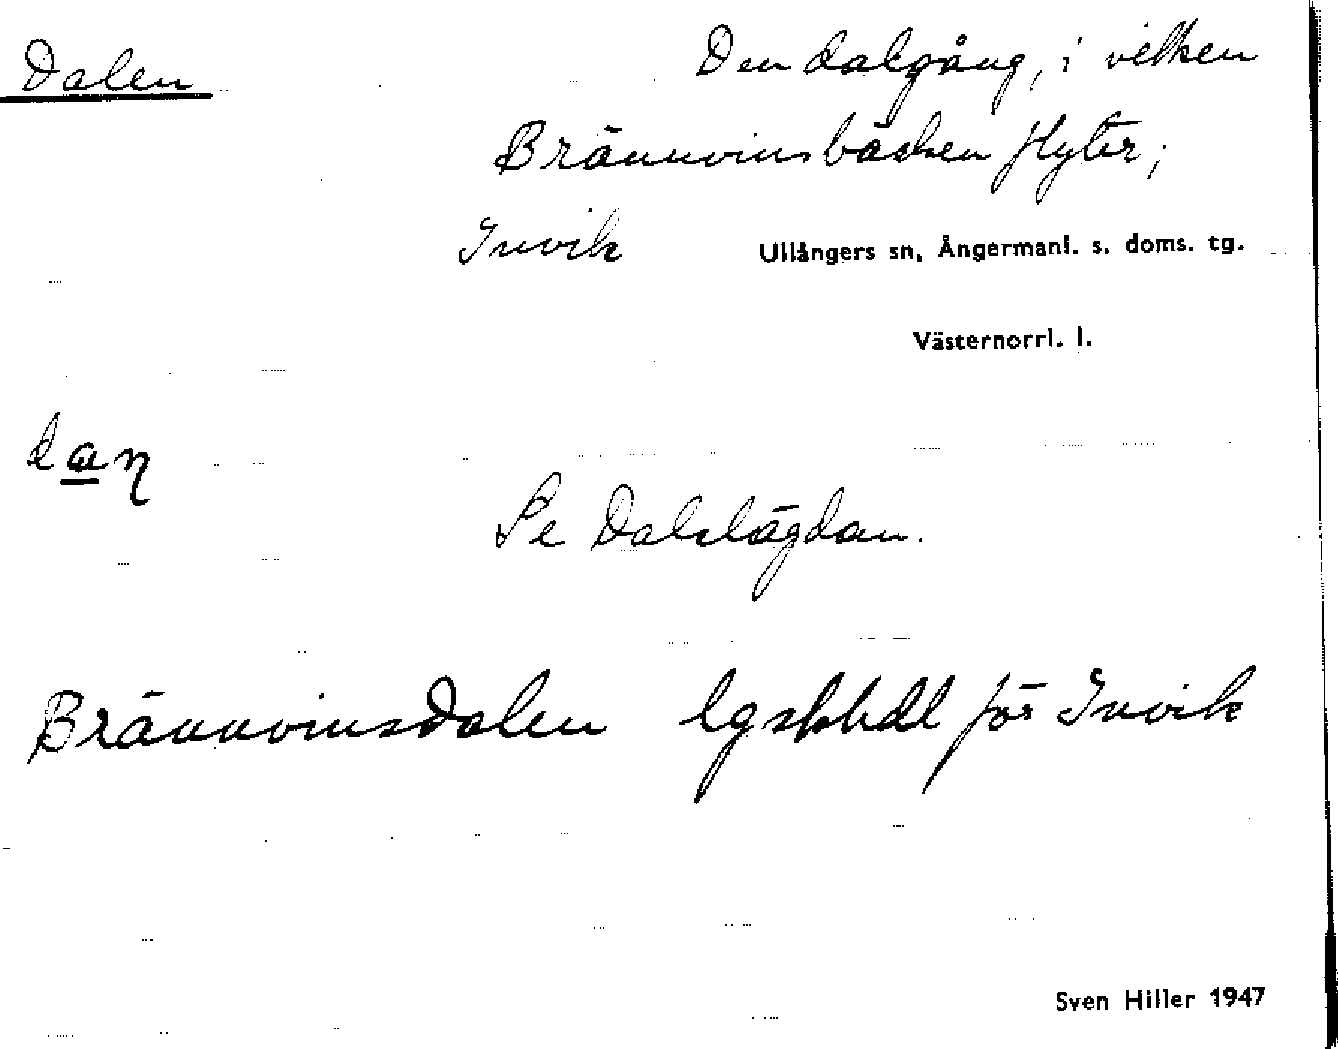 Dalen
Den dalgång, i vilken
Brännvinsbäcken flyter;
Invik
Ullångers sn, Ångermanl. s. doms. tg.
Västernorrl. l.
Se Dalslägdan.
Brännvinsdalen lgskhdl för Invik
Sven Hiller 1947